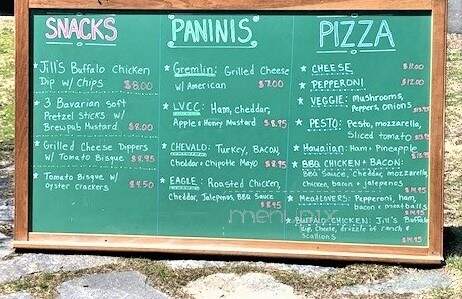 SNACKS
★ Jill's Buffalo Chicken
Dip w/ Chips $8.00
★ 3 Bavarian Soft
Pretzel Sticks w/
Brewpub Mustard $8.00
★ Grilled Cheese Dippers
w/ Tomato Bisque $8.95
★ Tomato Bisque w/
oyster crackers $4.50
PANINIS
★ Gremlin: Grilled Cheese
w/ American $7.00
★ LVCC: Ham, cheddar,
Apple & Honey Mustard $8.95
★ CHEVALD: Turkey, BACON,
Cheddar & Chipotle Mayo $8.95
★ EAGLE: Roasted Chicken,
Cheddar, Jalepenos, BBQ Sauce
$8.95
PIZZA
★ CHEESE $11.00
★ PEPPERONI $12.00
★ VEGGIE: Mushrooms,
Peppers, onions
★ PESTO: Pesto, mozzarella,
Sliced tomato
★ Hawaiian: Ham & Pineapple
★ BBQ CHICKEN & BACON:
BBQ Sauce, Cheddar, mozzarella,
Chicken, bacon & jalepenos
$14.95
★ MEATLOVERS: Pepperoni, ham,
bacon & meatballs
$14.95
★ BUFFALO CHICKEN: Jill's Buffalo
Dip, Cheese, drizzle of ranch &
Scallions
$14.95
menupix